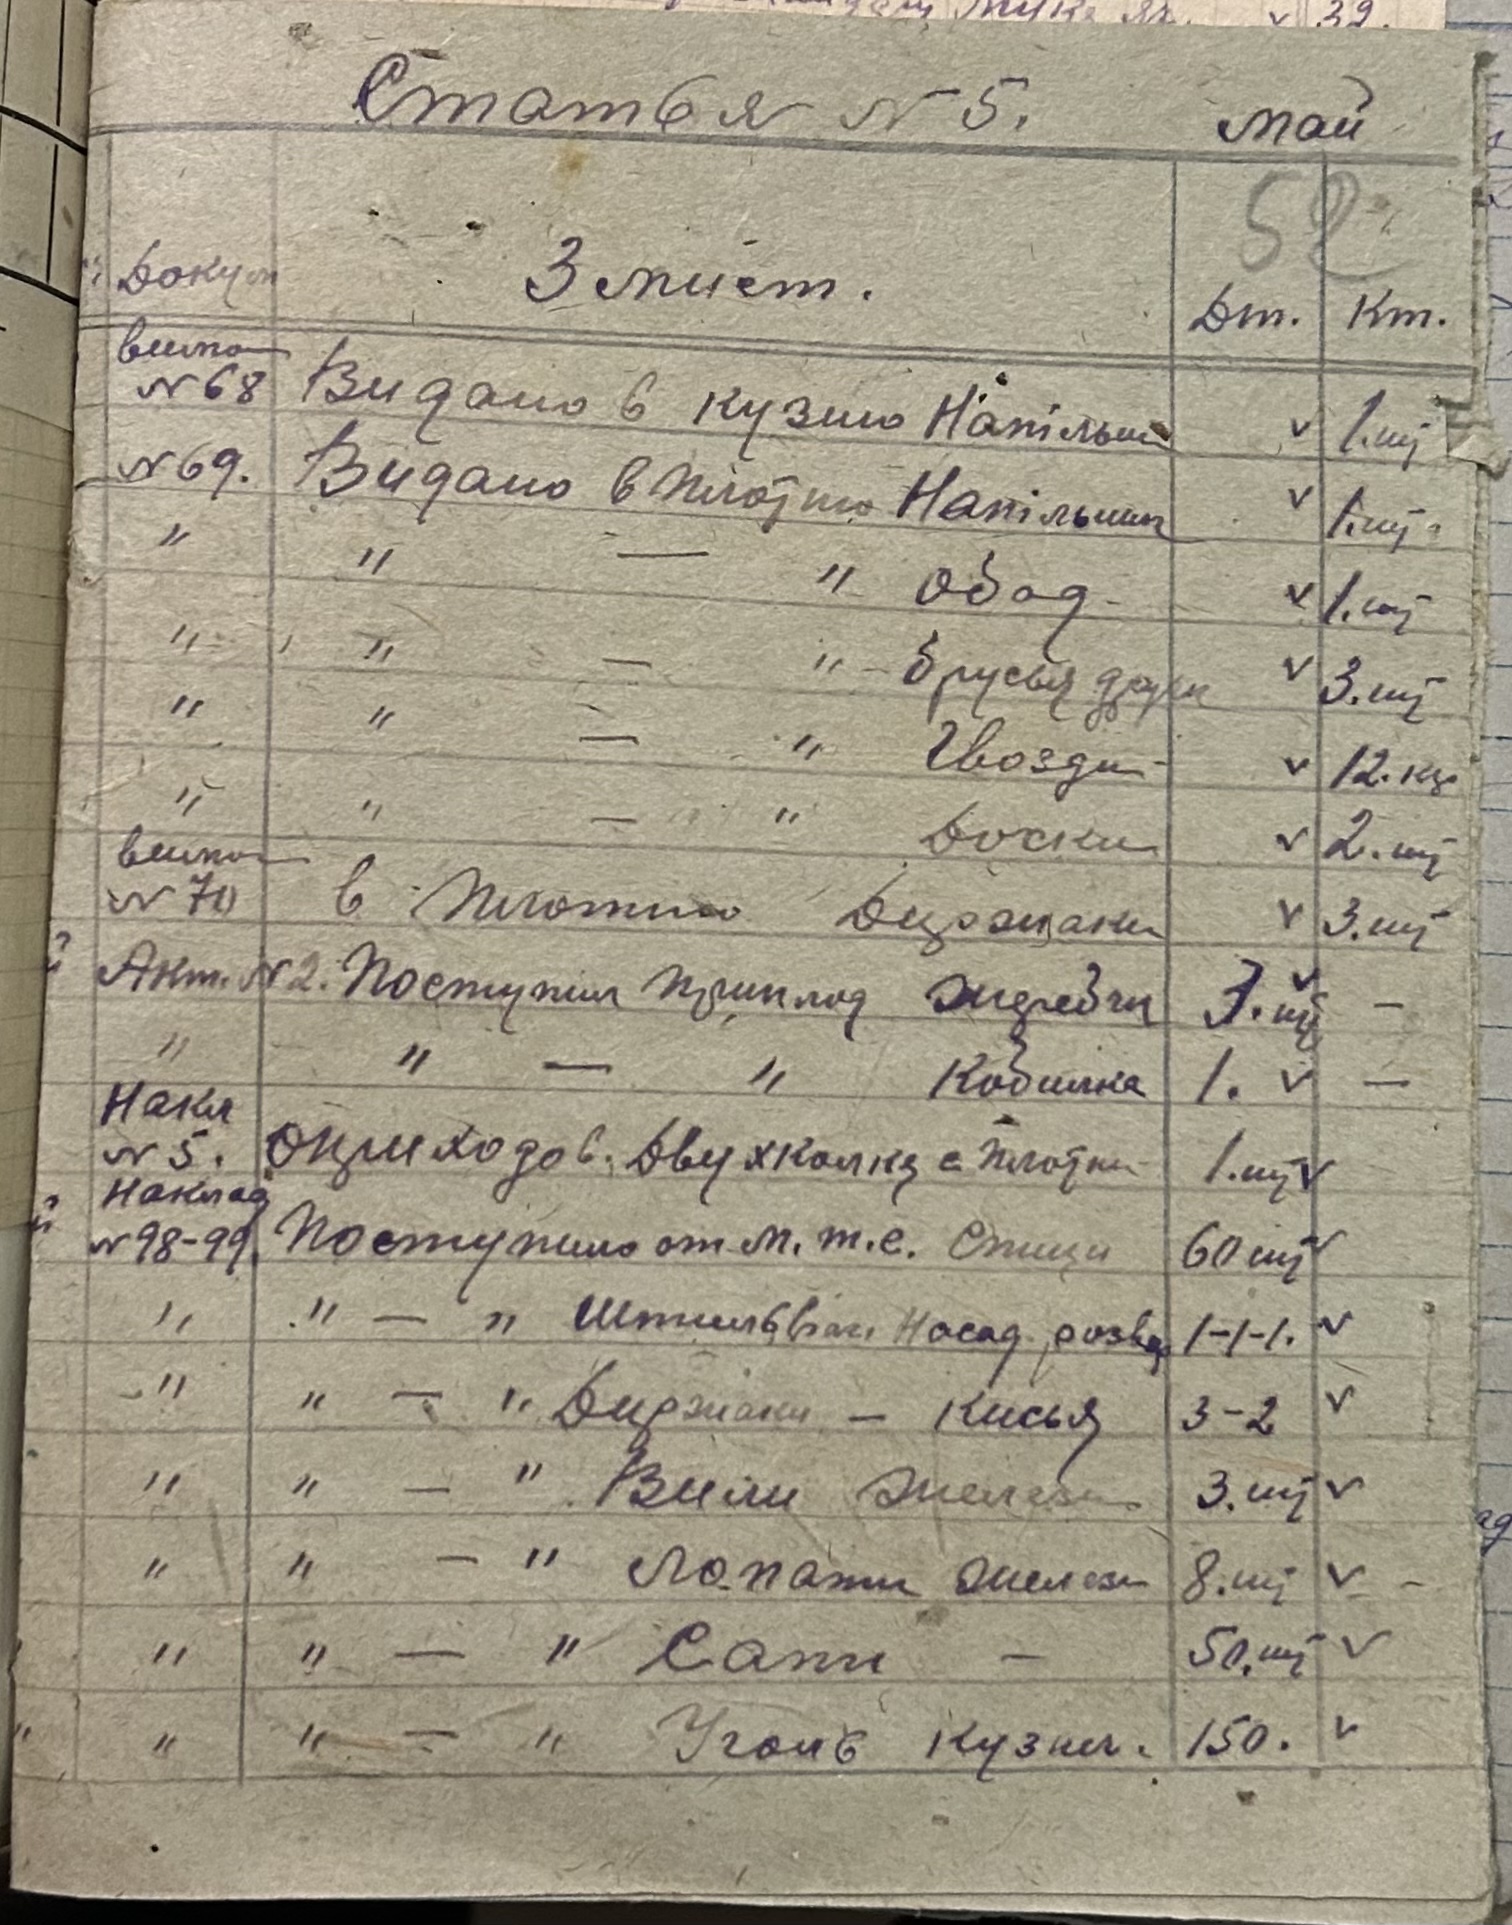 Статья N 5. май
52
Докум Змист. Дт. Кт.
випис
N 68 Видано в кузню Напільник v 1.шт
N 69. Видано в плотню Напільник v 1.шт.
" " — " Обод v 1.шт
" " — " брусья v 3.шт
" " — " Гвозди v 12.кг
" " — " Доски v 2.шт
випис
N 70 в плотню Держаки v 3.шт
Акт. N 2. Поступил приплод жеребчик 3.шт v —
" " — " Кобилка 1. v —
Накл
N 5. Оприходов. Двухколку с плотни 1.шт v
Наклад
N 98-99. Поступило от м.т.с. Спици 60 шт v
" " — " Насад. 1-1-1. v
" " — " Держаки — Кисья 3-2 v
" " — " Вили железн 3.шт v
" " — " Лопати железн 8.шт v —
" " — " Сапи — 50.шт v
" " — " Уголь кузнеч. 150. v